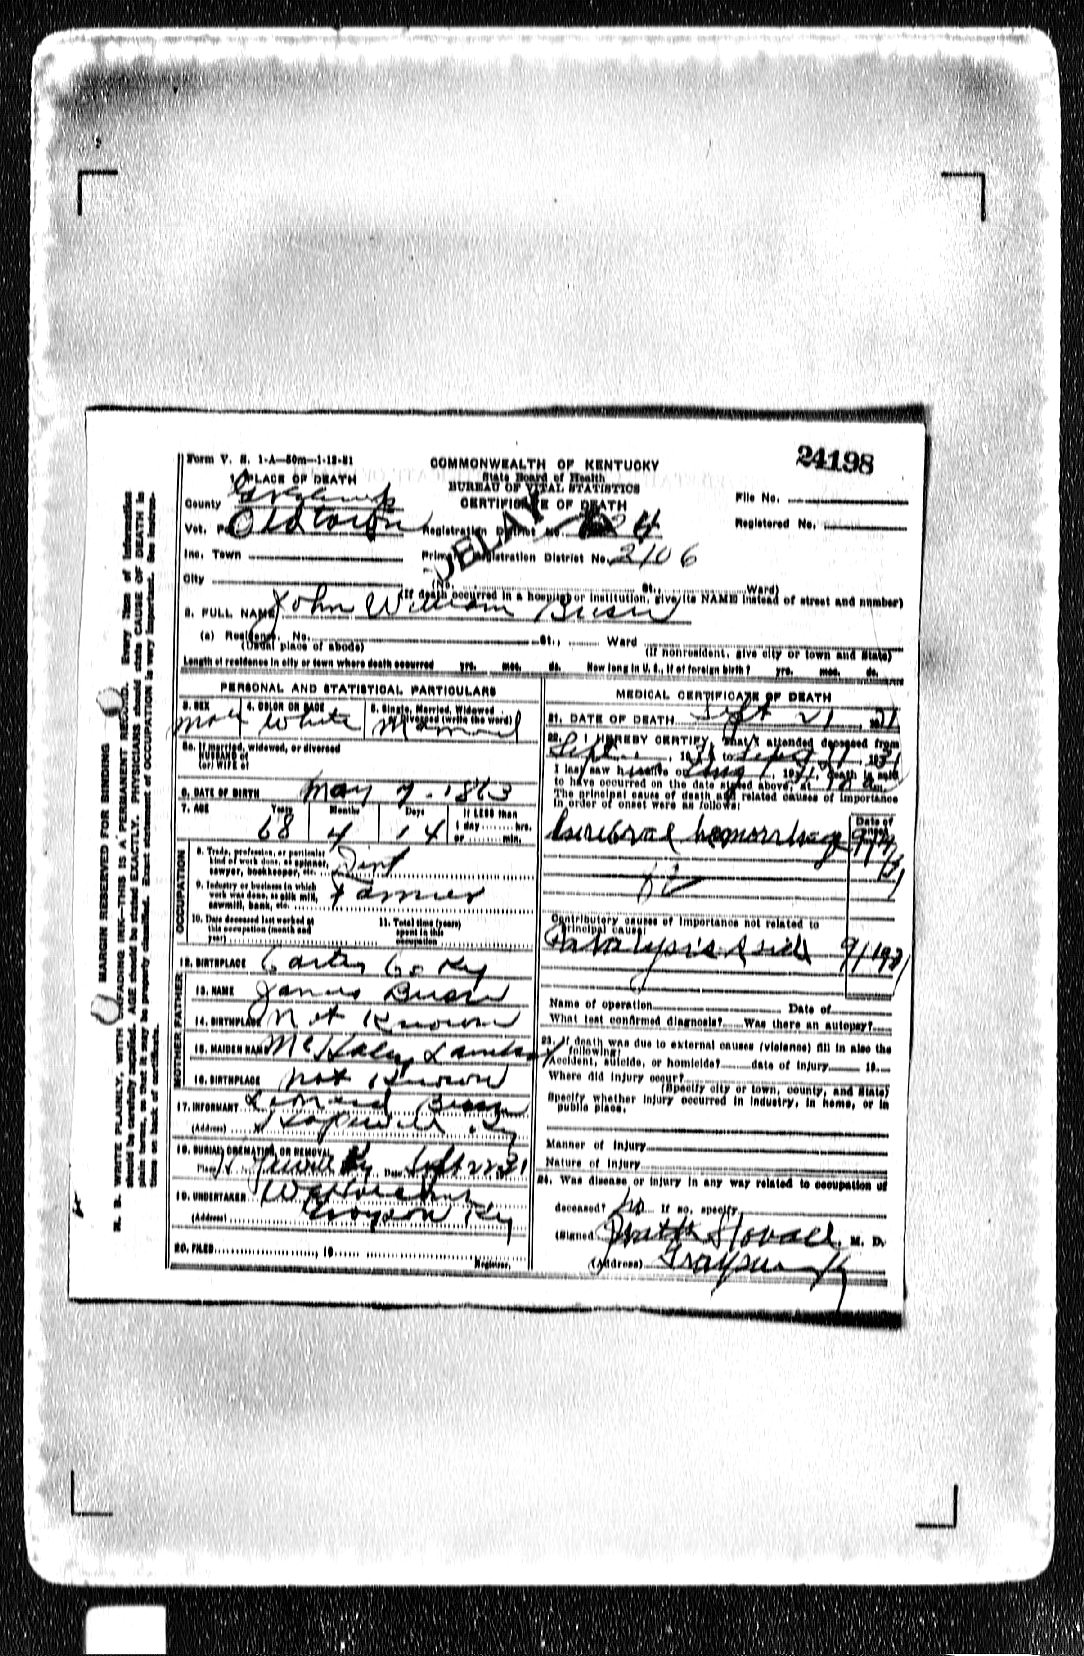 24198
Form V. S. 1-A—50m—1-12-31
COMMONWEALTH OF KENTUCKY
State Board of Health
BUREAU OF VITAL STATISTICS
CERTIFICATE OF DEATH
DELAY
1. PLACE OF DEATH
County Greenup
Vot. Oldtown
Inc. Town
City
File No.
Registered No.
Registration District No.
Primary Registration District No. 2106
(No. St., Ward)
(If death occurred in a hospital or institution, give its NAME instead of street and number)
2. FULL NAME John William Bush
(a) Residence. No. St., Ward
(Usual place of abode) (If nonresident, give city or town and State)
Length of residence in city or town where death occurred yrs. mos. ds. How long in U. S., if of foreign birth? yrs. mos. ds.
PERSONAL AND STATISTICAL PARTICULARS
3. SEX 4. COLOR OR RACE 5. Single, Married, Widowed
or Divorced (write the word)
Male White Married
5a. If married, widowed, or divorced
HUSBAND of
(or) WIFE of
6. DATE OF BIRTH May 7 - 1863
7. AGE Years Months Days If LESS than
68 4 14 1 day hrs.
or min.
OCCUPATION
8. Trade, profession, or particular
kind of work done, as spinner,
sawyer, bookkeeper, etc.
9. Industry or business in which
work was done, as silk mill,
sawmill, bank, etc. Farmer
10. Date deceased last worked at
this occupation (month and
year)
11. Total time (years)
spent in this
occupation
12. BIRTHPLACE Carter Co Ky
FATHER
13. NAME James Bush
14. BIRTHPLACE Not Known
MOTHER
15. MAIDEN NAME
16. BIRTHPLACE Not Known
17. INFORMANT Bush
(Address) Hopewell Ky
18. BURIAL, CREMATION, OR REMOVAL
Place Ky Date Sept 22 31
19. UNDERTAKER
(Address) Grayson Ky
20. FILED , 19 Registrar.
MEDICAL CERTIFICATE OF DEATH
21. DATE OF DEATH Sept 21 31
22. I HEREBY CERTIFY, That I attended deceased from
Sept 1, 1931 to Sept 21, 1931
I last saw h alive on , 1931, death is said
to have occurred on the date signed above, at
The principal cause of death and related causes of importance
in order of onset were as follows:
Date of
onset
Cerebral hemorrhage
Contributory causes of importance not related to
principal cause:
Paralysis side 9/1931
Name of operation Date of
What test confirmed diagnosis? Was there an autopsy?
23. If death was due to external causes (violence) fill in also the
following:
Accident, suicide, or homicide? date of injury 19
Where did injury occur?
(Specify city or town, county, and State)
Specify whether injury occurred in industry, in home, or in
public place.
Manner of Injury
Nature of Injury
24. Was disease or injury in any way related to occupation of
deceased? No If so, specify
(Signed) Stovall, M. D.
(Address) Grayson Ky
MARGIN RESERVED FOR BINDING
N. B. WRITE PLAINLY, WITH UNFADING INK—THIS IS A PERMANENT RECORD. Every item of information
should be carefully supplied. AGE should be stated EXACTLY. PHYSICIANS should state CAUSE OF DEATH in
plain terms, so that it may be properly classified. Exact statement of OCCUPATION is very important. See instruc-
tions on back of certificate.